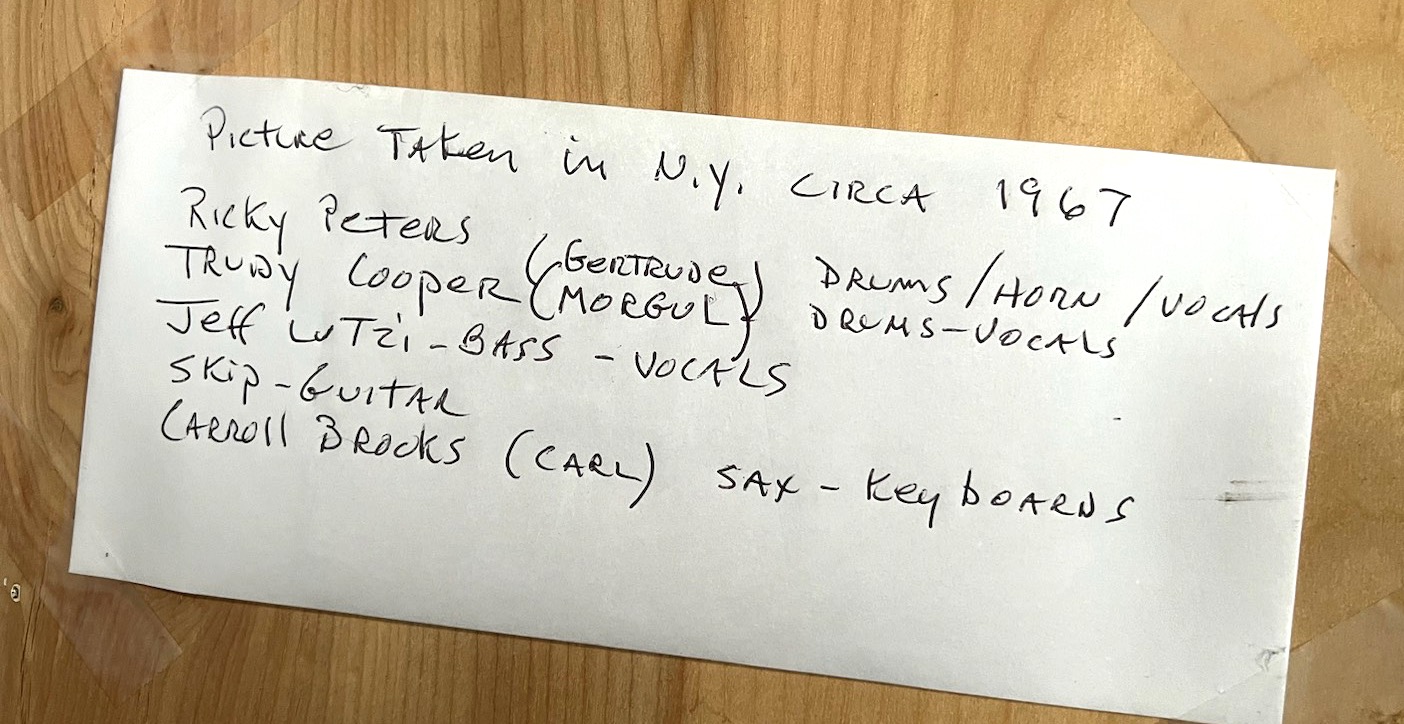 Picture Taken in N.Y. CIRCA 1967
Ricky Peters (GERTRUDE) DRUMS/HORN/VOCALS
TRUDY COOPER (MORGUL) DRUMS-VOCALS
Jeff LUTZi-BASS - VOCALS
SKip-GUITAR
CARROll BROOKS (CARL) SAX - KeyboARDS